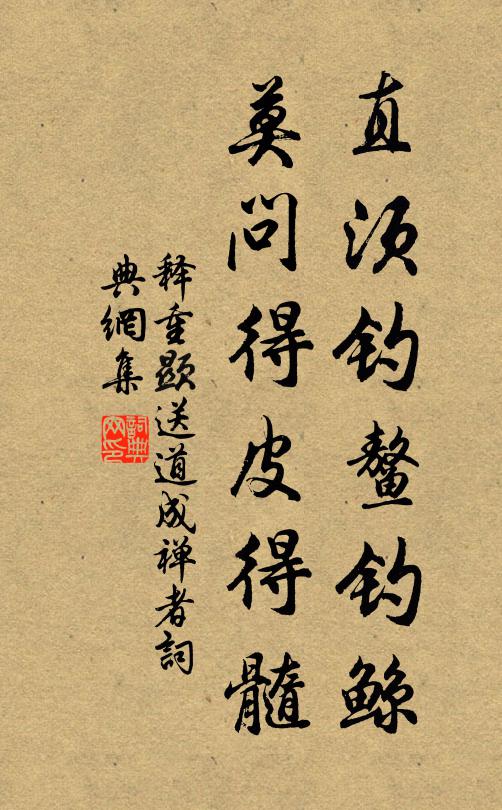 直须钓鳌钓鲸
莫问得皮得髓
释重显送道成禅者詞
典網集
詞典網印